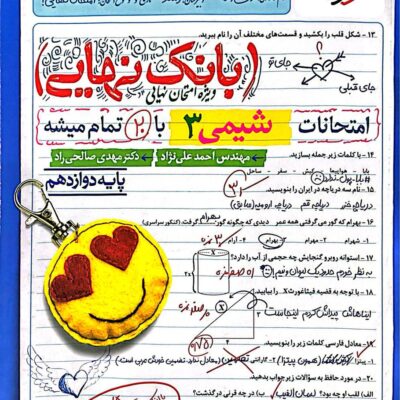 ۱۳- شکل قلب را بکشید و قسمت‌های مختلف آن را نام ببرید.
جای تو
جای قبلی
(بانک نهایی)
ویژه امتحان نهایی
امتحانات شیمی ۳ با ۲۰ تمام میشه
مهندس احمد علی‌نژاد
دکتر مهدی صالحی‌راد
پایه دوازدهم
۱۴- با کلمات زیر جمله بسازید.
بابا - هواپیما - کیش - سفر - ساحل
۱۵- نام سه دریاچه در ایران را بنویسید.
دریاچه خزر دریاچه قم دریاچه ارومیه
۱۶- بهرام که گور می‌گرفتی همه عمر دیدی که چگونه گور بهرام گرفت. (کنکور سراسری)
۱- شهرام ۲- مهرام ۳- بهرام ۴- آرام
۱۷- استوانه روبرو گنجایش چه حجمی از آب را دارد؟
به نظر خودم حدود یک لیوان و نیم
۱۸- با توجه به قضیه فیثاغورث X را بیابید.
ایناهاش پیداش کردم اینجاست
۱۹- معادل فارسی کلمات زیر را بنویسید.
۲۰- در مورد حافظ به سؤالات زیر جواب بدهید.
الف) او چه بود؟ ب) در چه قرنی درگذشت؟